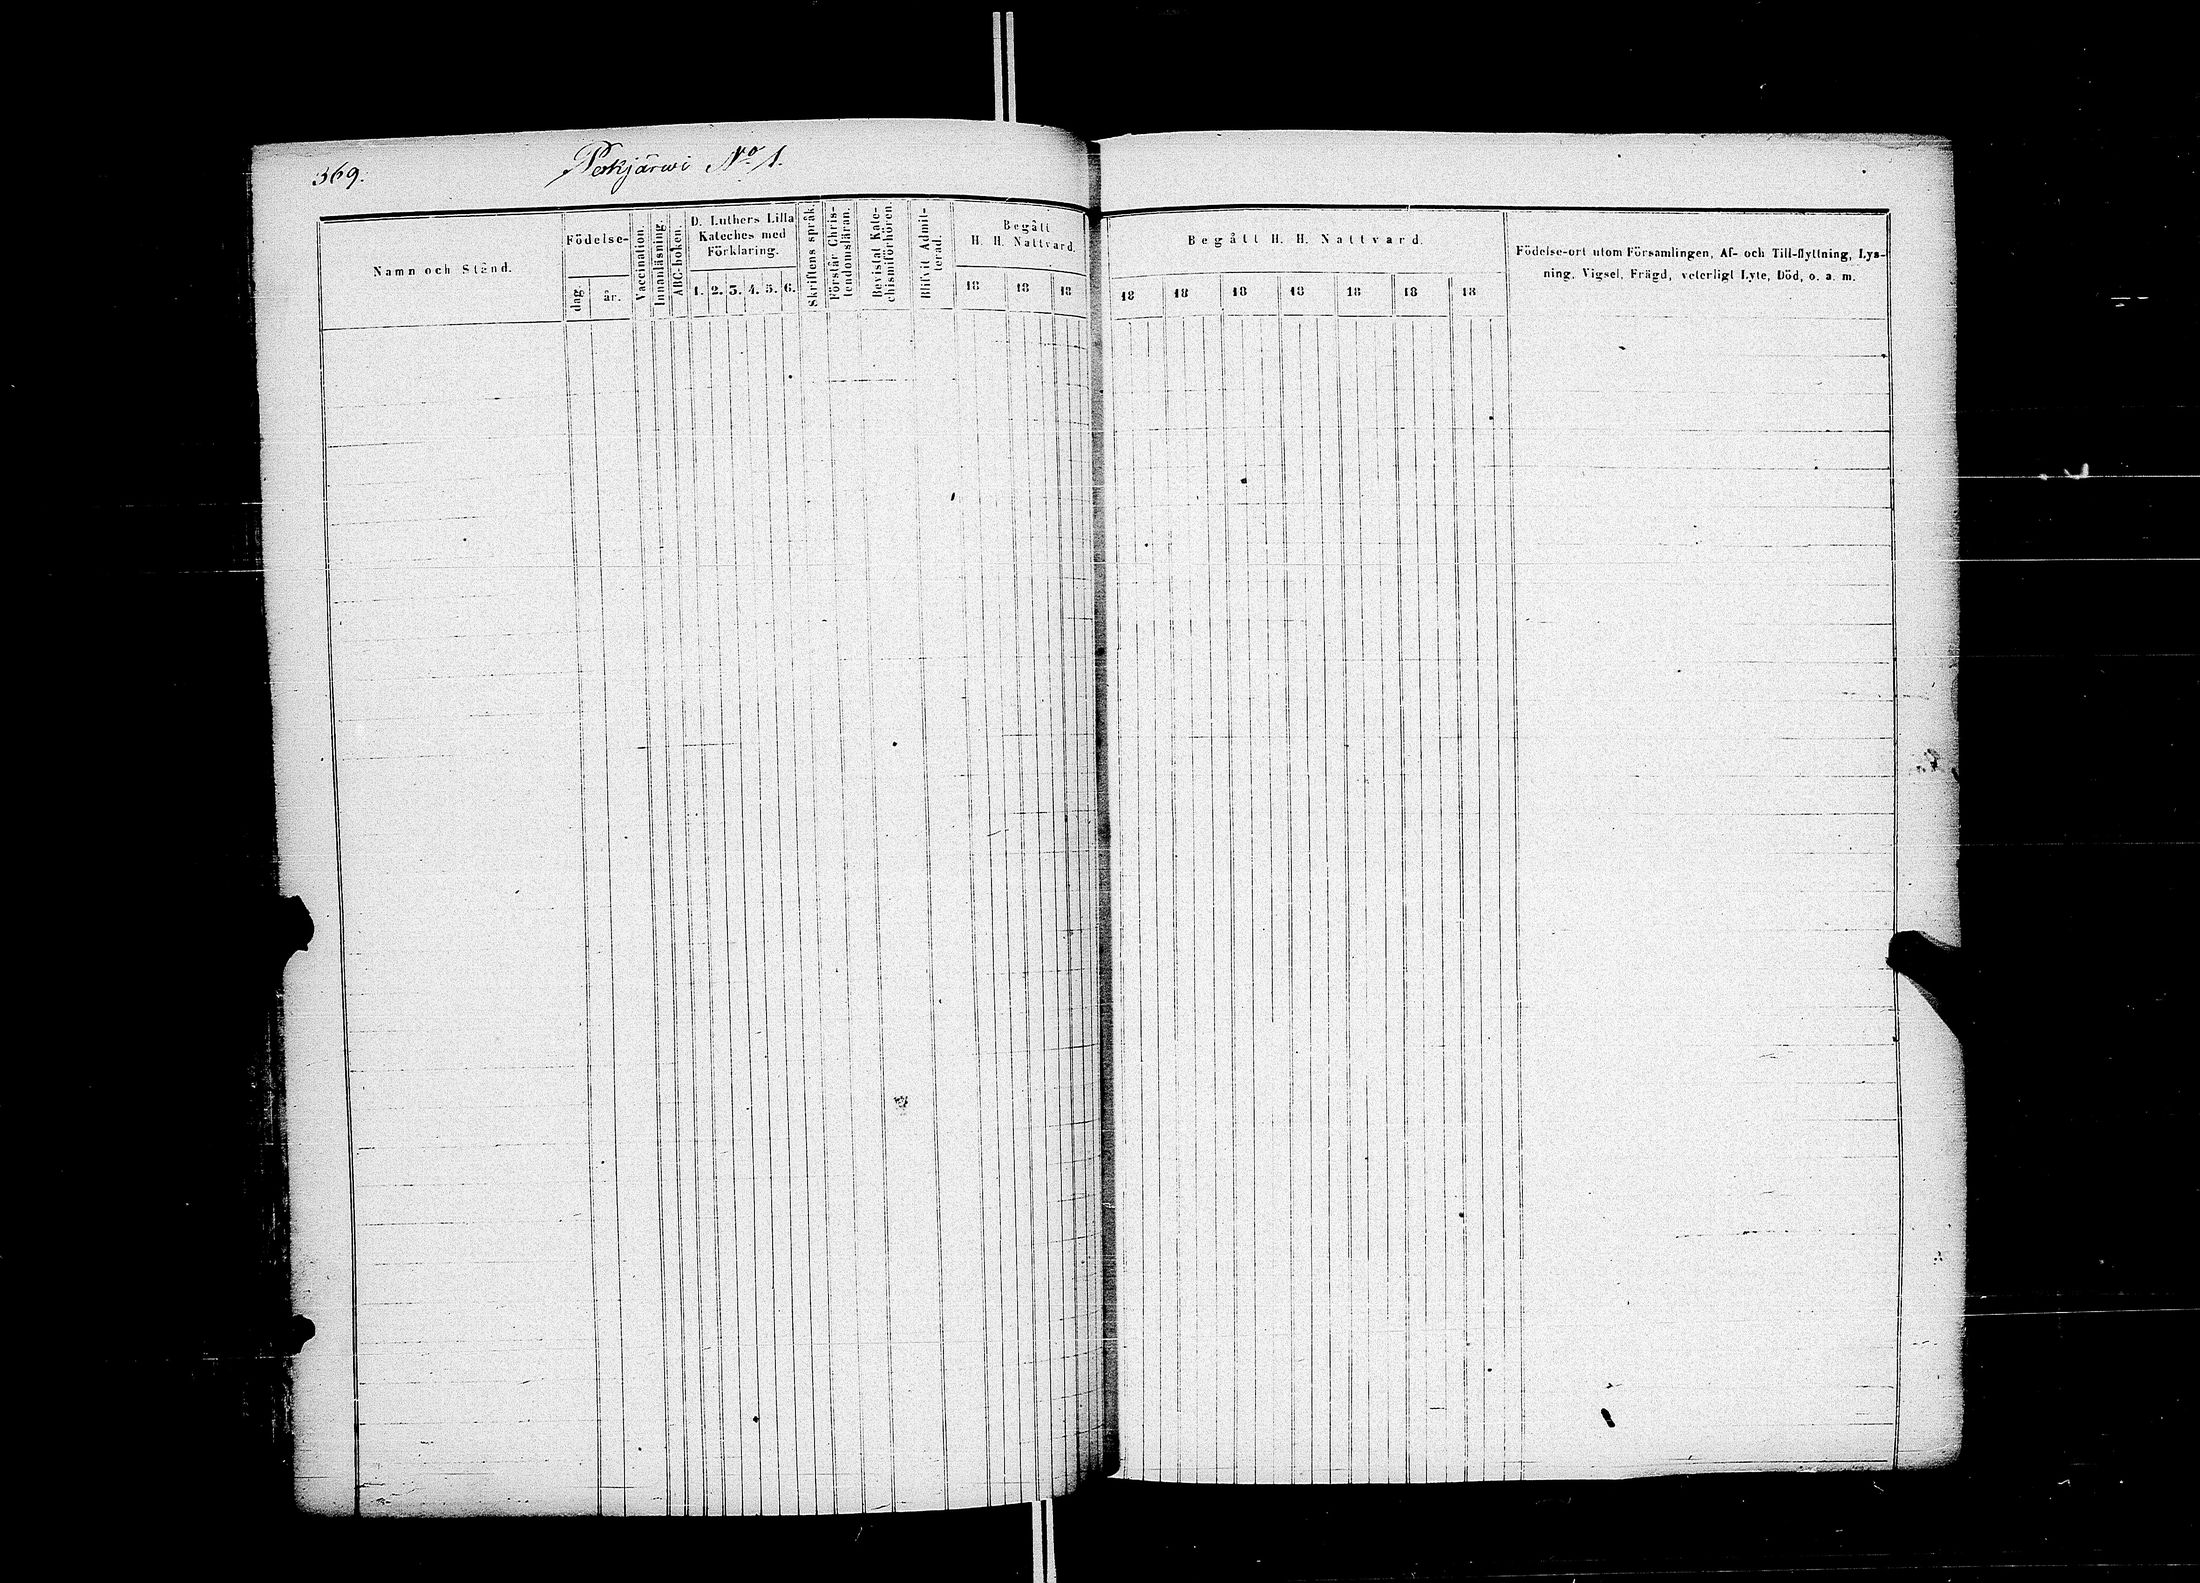 369.
Perkjärwi No 1.
Namn och Stånd.
Födelse-
dag.
år.
Vaccination.
Innanläsning.
ABC-boken.
D. Luthers Lilla
Kateches med
Förklaring.
1. 2. 3. 4. 5. 6.
Skriftens språk.
Förstår Chris-
tendomsläran.
Bevistat Kate-
chismiförhören.
Blifvit Admit-
terad.
Begått
H. H. Nattvard.
18 18 18
Begått H. H. Nattvard.
18 18 18 18 18 18 18
Födelse-ort utom Församlingen, Af- och Till-flyttning, Lys-
ning, Vigsel, Frägd, veterligt Lyte, Död, o. a. m.